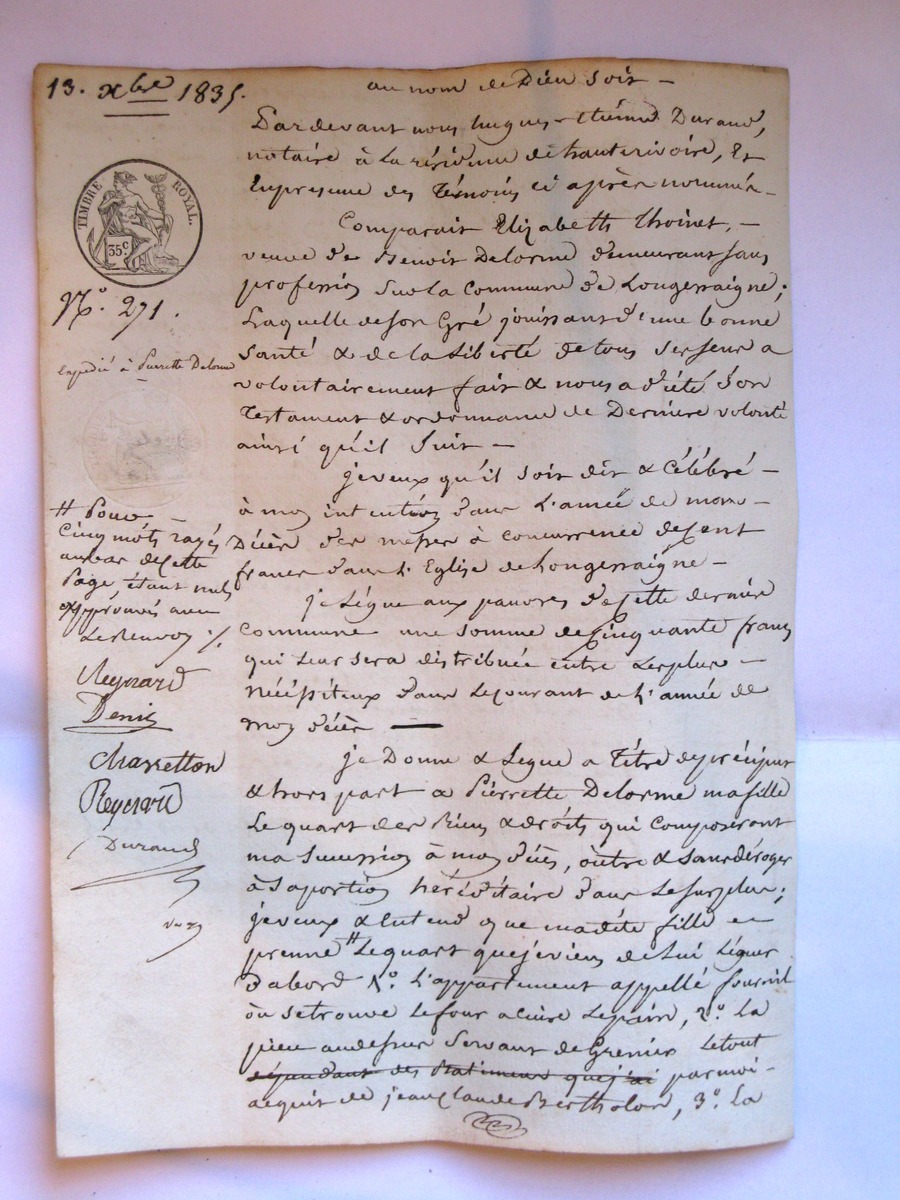 13. xbre 1835.
TIMBRE ROYAL.
35c
No. 271.
Expédié à Pierrette Delorme
# Pour
cinq mots rayés
au bas de cette
Page, étant nuls
approuvés avec
le Renvoy ./.
Reynard
Denis
Charretton
Reynard
Durand
au nom de Dieu soit —
Pardevant nous hugues - étienne Durand,
notaire à la résidence de hauterivoire, Et
En presence des Témoins ci après nommés —
Comparait Elizabeth Thoinet, —
veuve de Benoit Delorme demeurant sans
profession sur la commune de Longessaigne ;
Laquelle de son Gré jouissant d'une bonne
santé & de la Liberté de tous ses sens a
volontairement fait & nous a dicté son
Testament & ordonnance de Derniere volonté
ainsi qu'il suit —
je veux qu'il soit dit & célébré —
à mon intention dans l'année de mon
Décès des messes à concurrence de Cent
francs dans l'Eglise de Longessaigne —
je Lègue aux pauvres de Cette derniere
commune une somme de Cinquante francs
qui leur sera distribuée entre les plus —
nécessiteux dans le courant de l'année de
mon décès —
je Donne & Lègue a Titre de préciput
& hors part a Pierrette Delorme ma fille
Le quart des Biens & droits qui composeront
ma succession à mon décès, outre & sans déroger
à sa portion héréditaire dans le surplus ;
je veux & Entend que ma dite fille en
prenne # Le quart que je viens de Lui Léguer
d'abord 1o. L'appartement appellé fournil
où se trouve le four a cuire le pain, 2o. La
piece au dessus servant de Grenier Le tout
dépendant des Batiments que j'ai par moi
acquit de jean Claude Bertholon, 3o. La